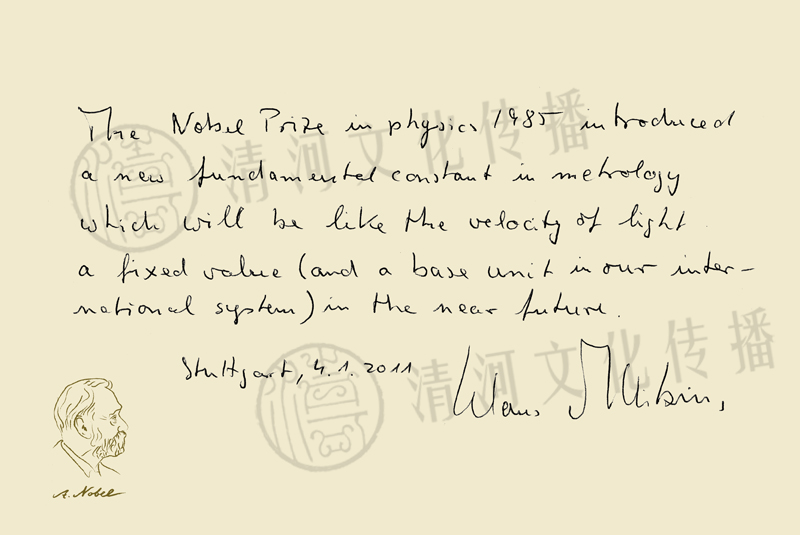 The Nobel Prize in physics 1985 introduced
清河文化传播
a new fundamental constant in metrology
which will be like the velocity of light
a fixed value (and a base unit in our inter-
national system) in the near future.
清河文化传播
Stuttgart, 4.1.2011
Klaus
A. Nobel